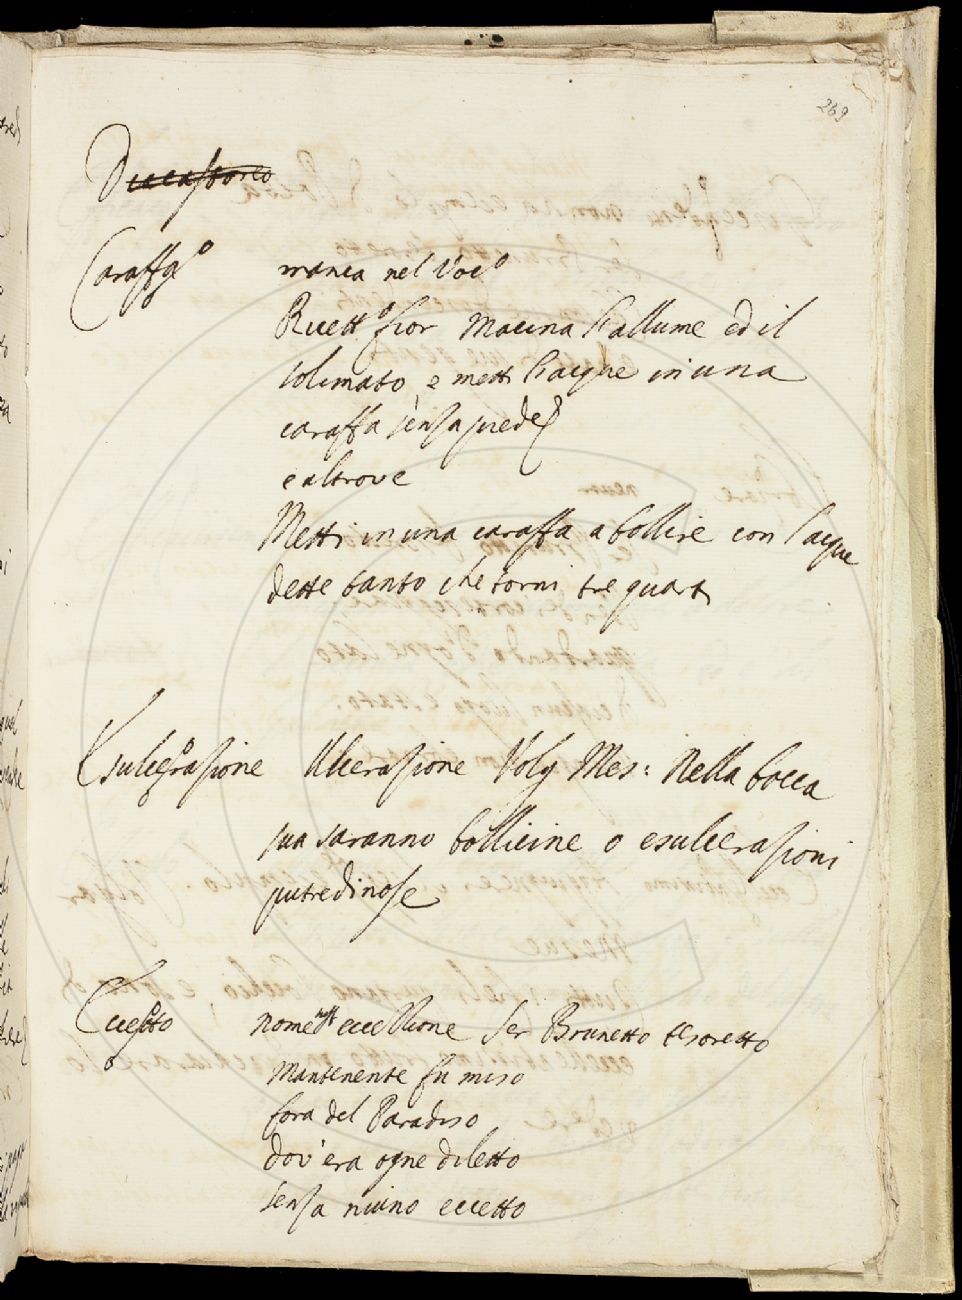 269
Diacastoreo
Caraffa manca nel Voco
Ricett. fior Macina l'allume ed il
solimato, e metti l'acque in una
caraffa senza piede
e altrove
Metti in una caraffa a bollire con l'acque
dette tanto che torni tre quarti
Esulcerazione Ulcerazione Volg Mes: Nella bocca
sua saranno bollicine o esulcerazioni
putredinose
Eccetto nome eccellione Ser Brunetto tesoretto
Mantenente fu miso
fora del Paradiso
dov'era ogne diletto
senza niuno eccetto